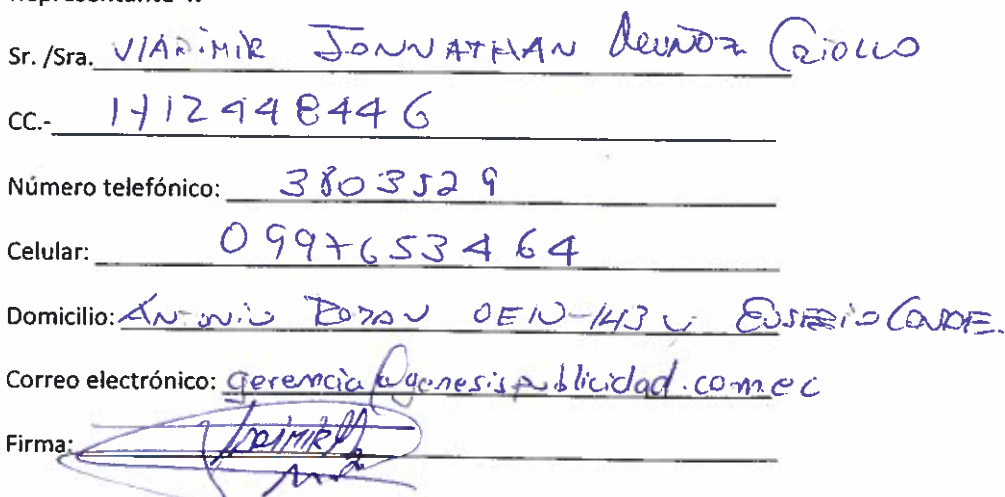 Sr. /Sra. VLADIMIR JONNATHAN MUÑOZ CRIOLLO
CC.- 1712448446
Número telefónico: 3803529
Celular: 0997653464
Domicilio: ANTONIO OE10-143 Y EUSEBIO CONDE.
Correo electrónico: gerencia@genesispublicidad.com.ec
Firma: